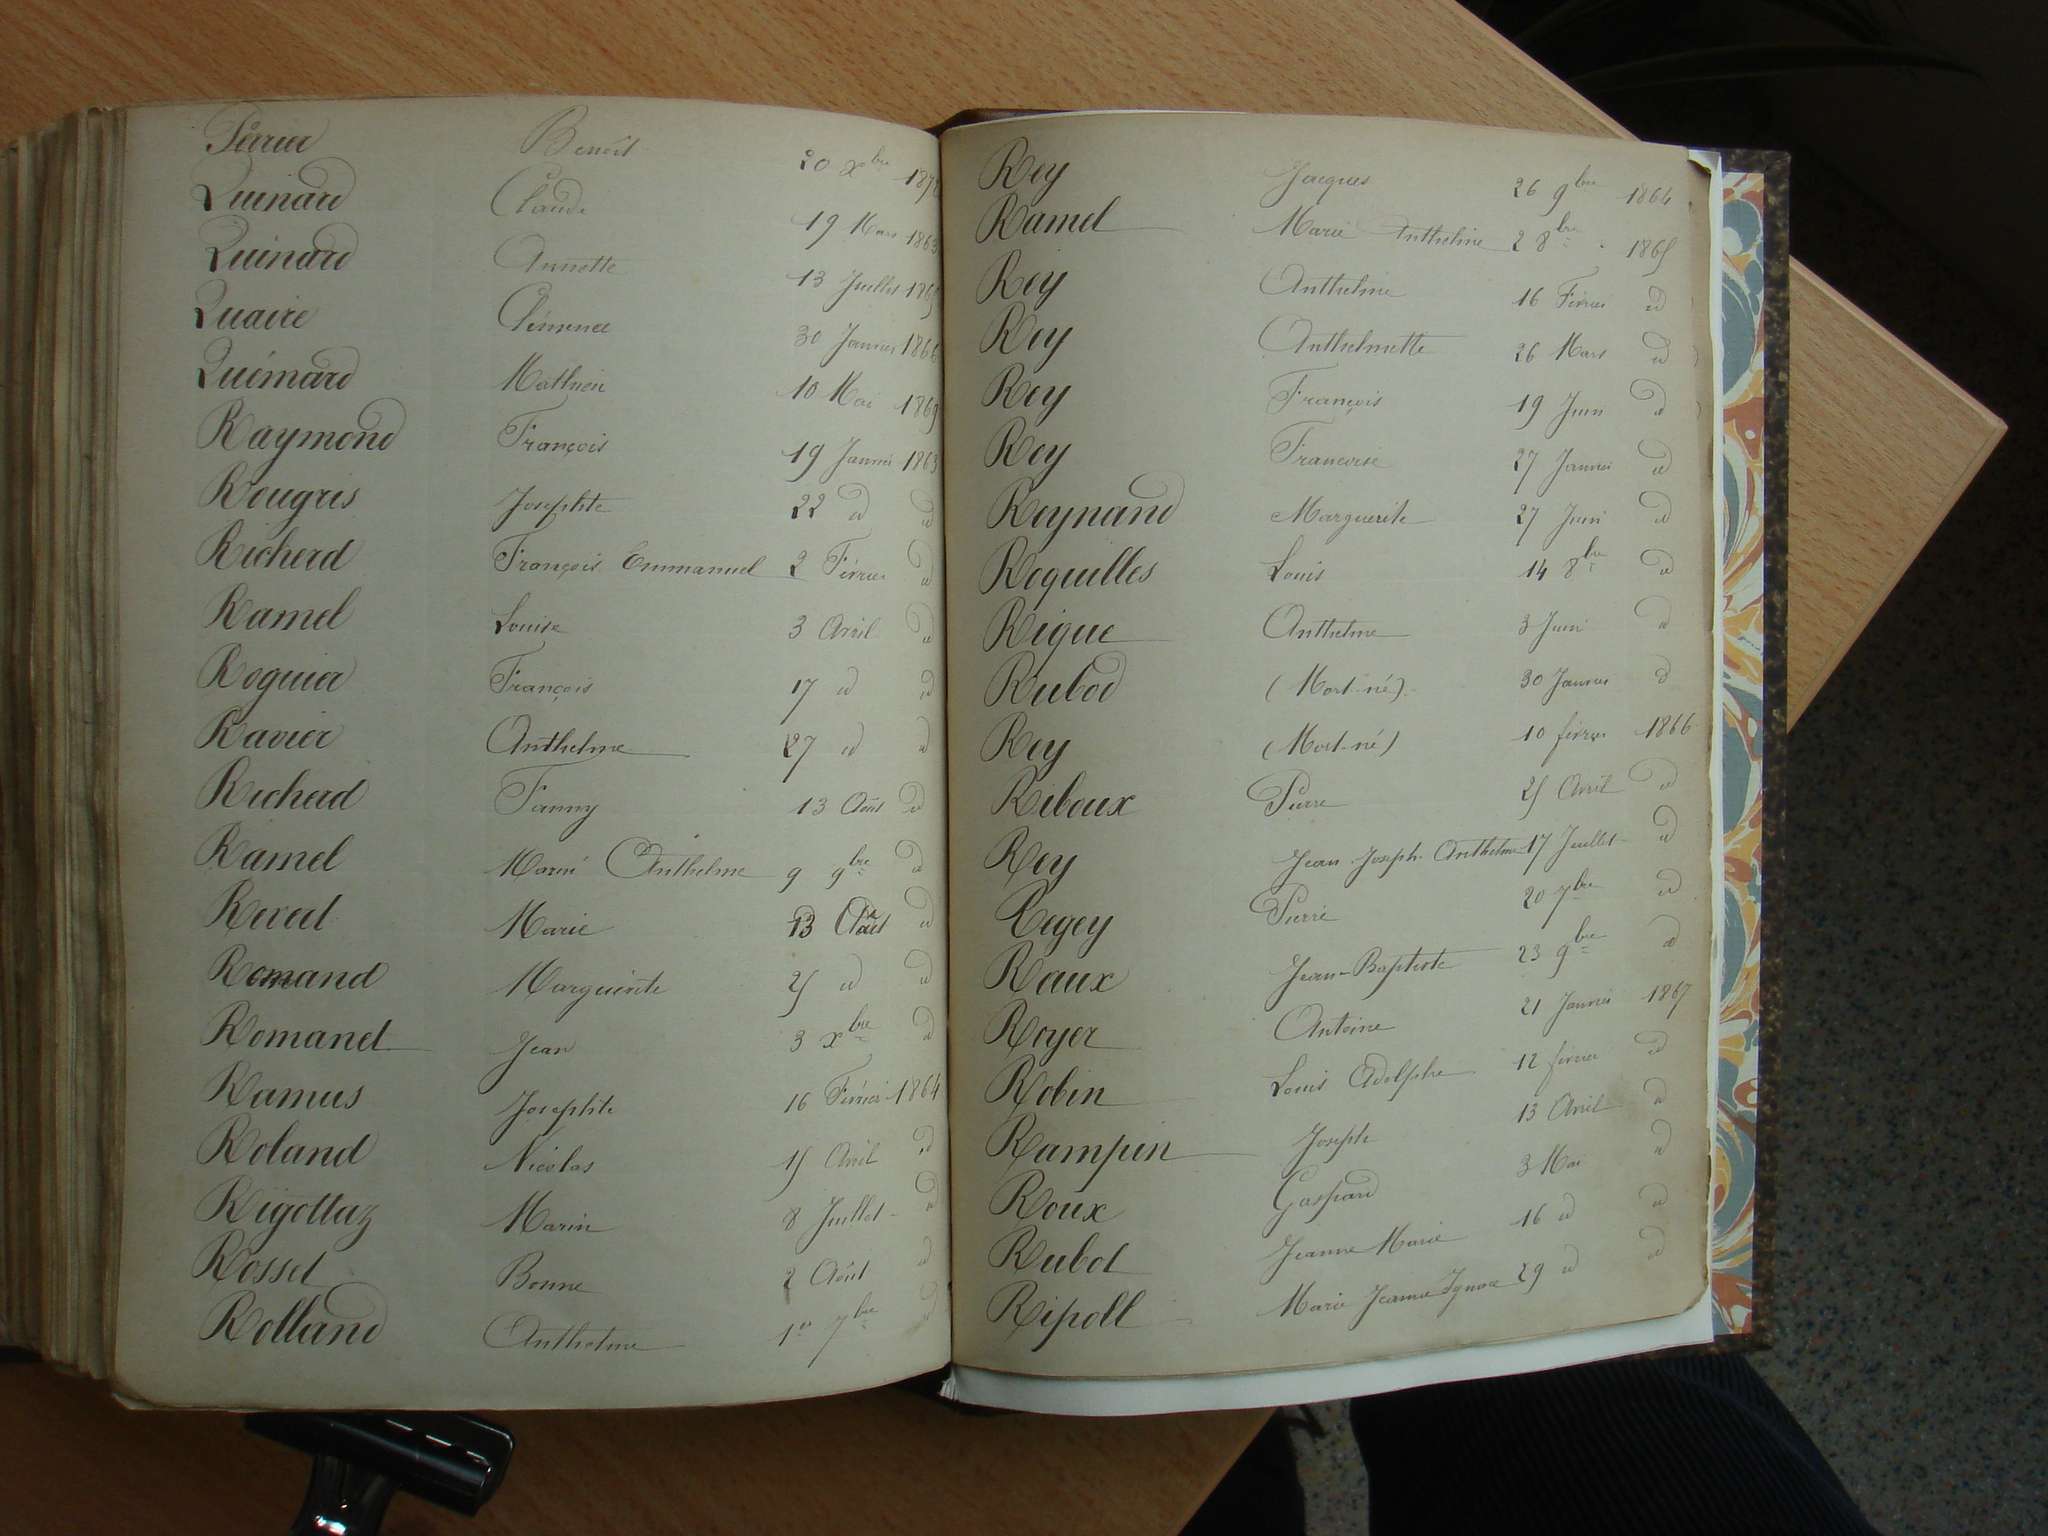 Perrier Benoît 20 xbre 187
Quinard Claude 19 Mars 1863
Quinard Annette 13 Juillet 1865
Quaire Clémence 30 Janvier 1866
Quémard Mathieu 10 Mai 1869
Raymond François 19 Janvier 1863
Rougris Josephte 22 id id
Richerd François Emmanuel 2 Février id
Ramel Louise 3 Avril id
Roguier François 17 id id
Ravier Anthelme 27 id id
Richerd Fanny 13 Août id
Ramel Marie Anthelme 9 9bre id
Revert Marie 13 Août id
Romand Marguerite 25 id id
Romanet Jean 3 xbre id
Ramus Josephte 16 Février 1864
Roland Nicolas 15 Avril id
Rigottaz Marin 8 Juillet id
Rosset Bonne 2 Août id
Rolland Anthelme 1er 7bre id
Rey Jacques 26 9bre 1864
Ramel Marie Anthelme 2 8bre 1865
Rey Anthelme 16 Février id
Rey Anthelmette 26 Mars id
Rey François 19 Juin id
Rey Francoise 27 Janvier id
Reynand Marguerite 27 Juin id
Roquilles Louis 14 8bre id
Rigue Anthelme 3 Juin id
Rubod (Mort-né). 30 Janvier id
Rey (Mort-né) 10 février 1866
Riboux Pierre 25 Avril id
Rey Jean-Joseph-Anthelme 17 Juillet id
Regey Pierre 20 7bre id
Raux Jean-Baptiste 23 9bre id
Royer Antoine 21 Janvier 1867
Robin Louis Adolphe 12 février id
Rampin Joseph 13 Avril id
Roux Gaspard 3 Mai id
Rubot Jeanne Marie 16 id id
Ripoll Marie Jeanne 29 id id